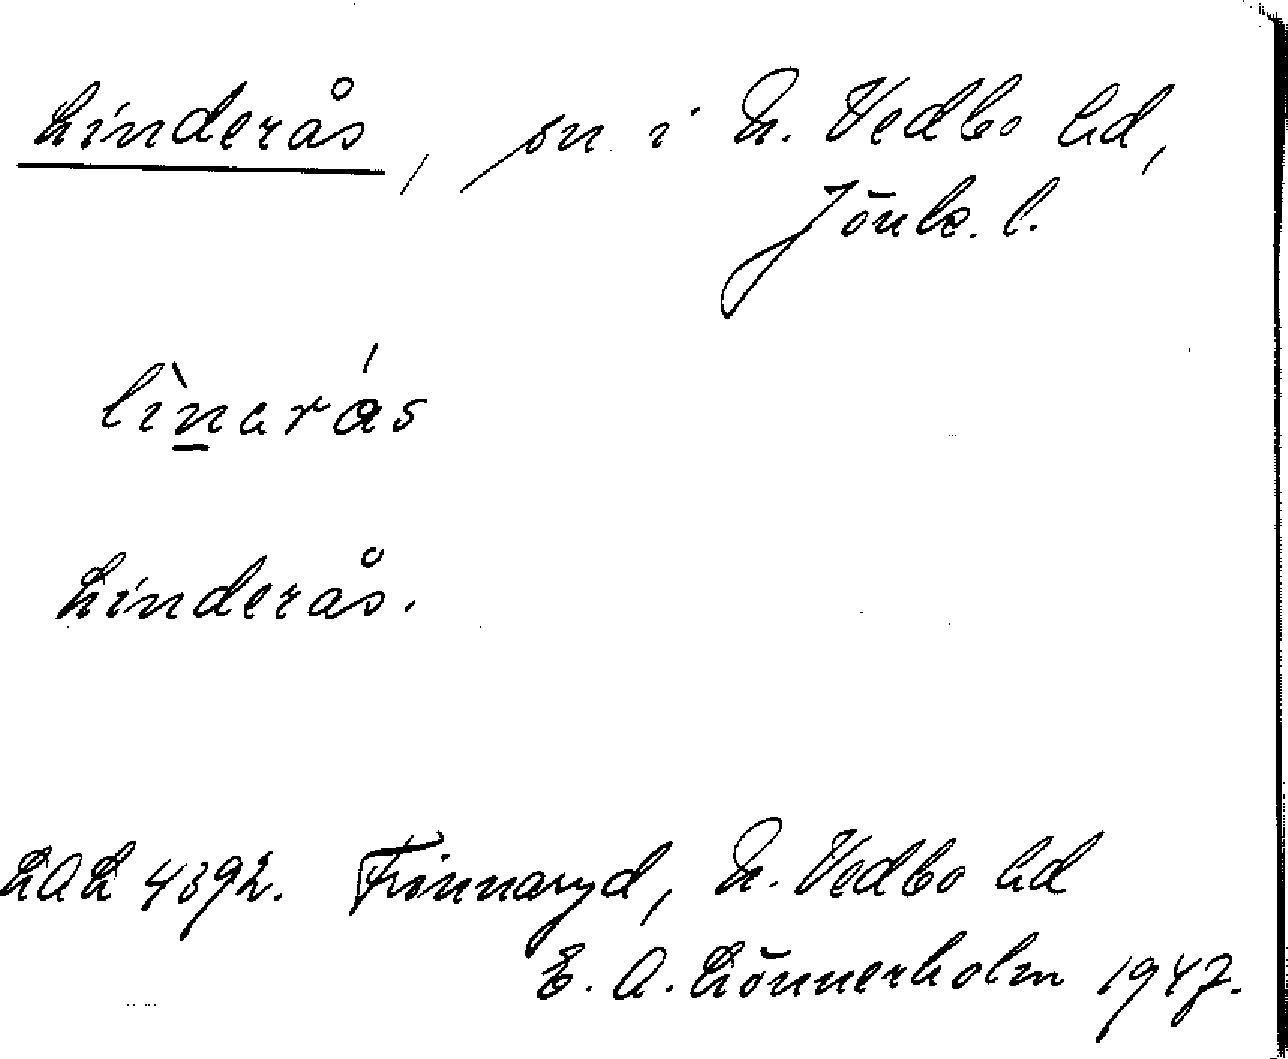 Linderås, sn i N. Vedbo hd,
Jönk. l.
lìnarás
Linderås.
LAL 4392. Frinnaryd, N. Vedbo hd
E. A. Lönnerholm 1947.